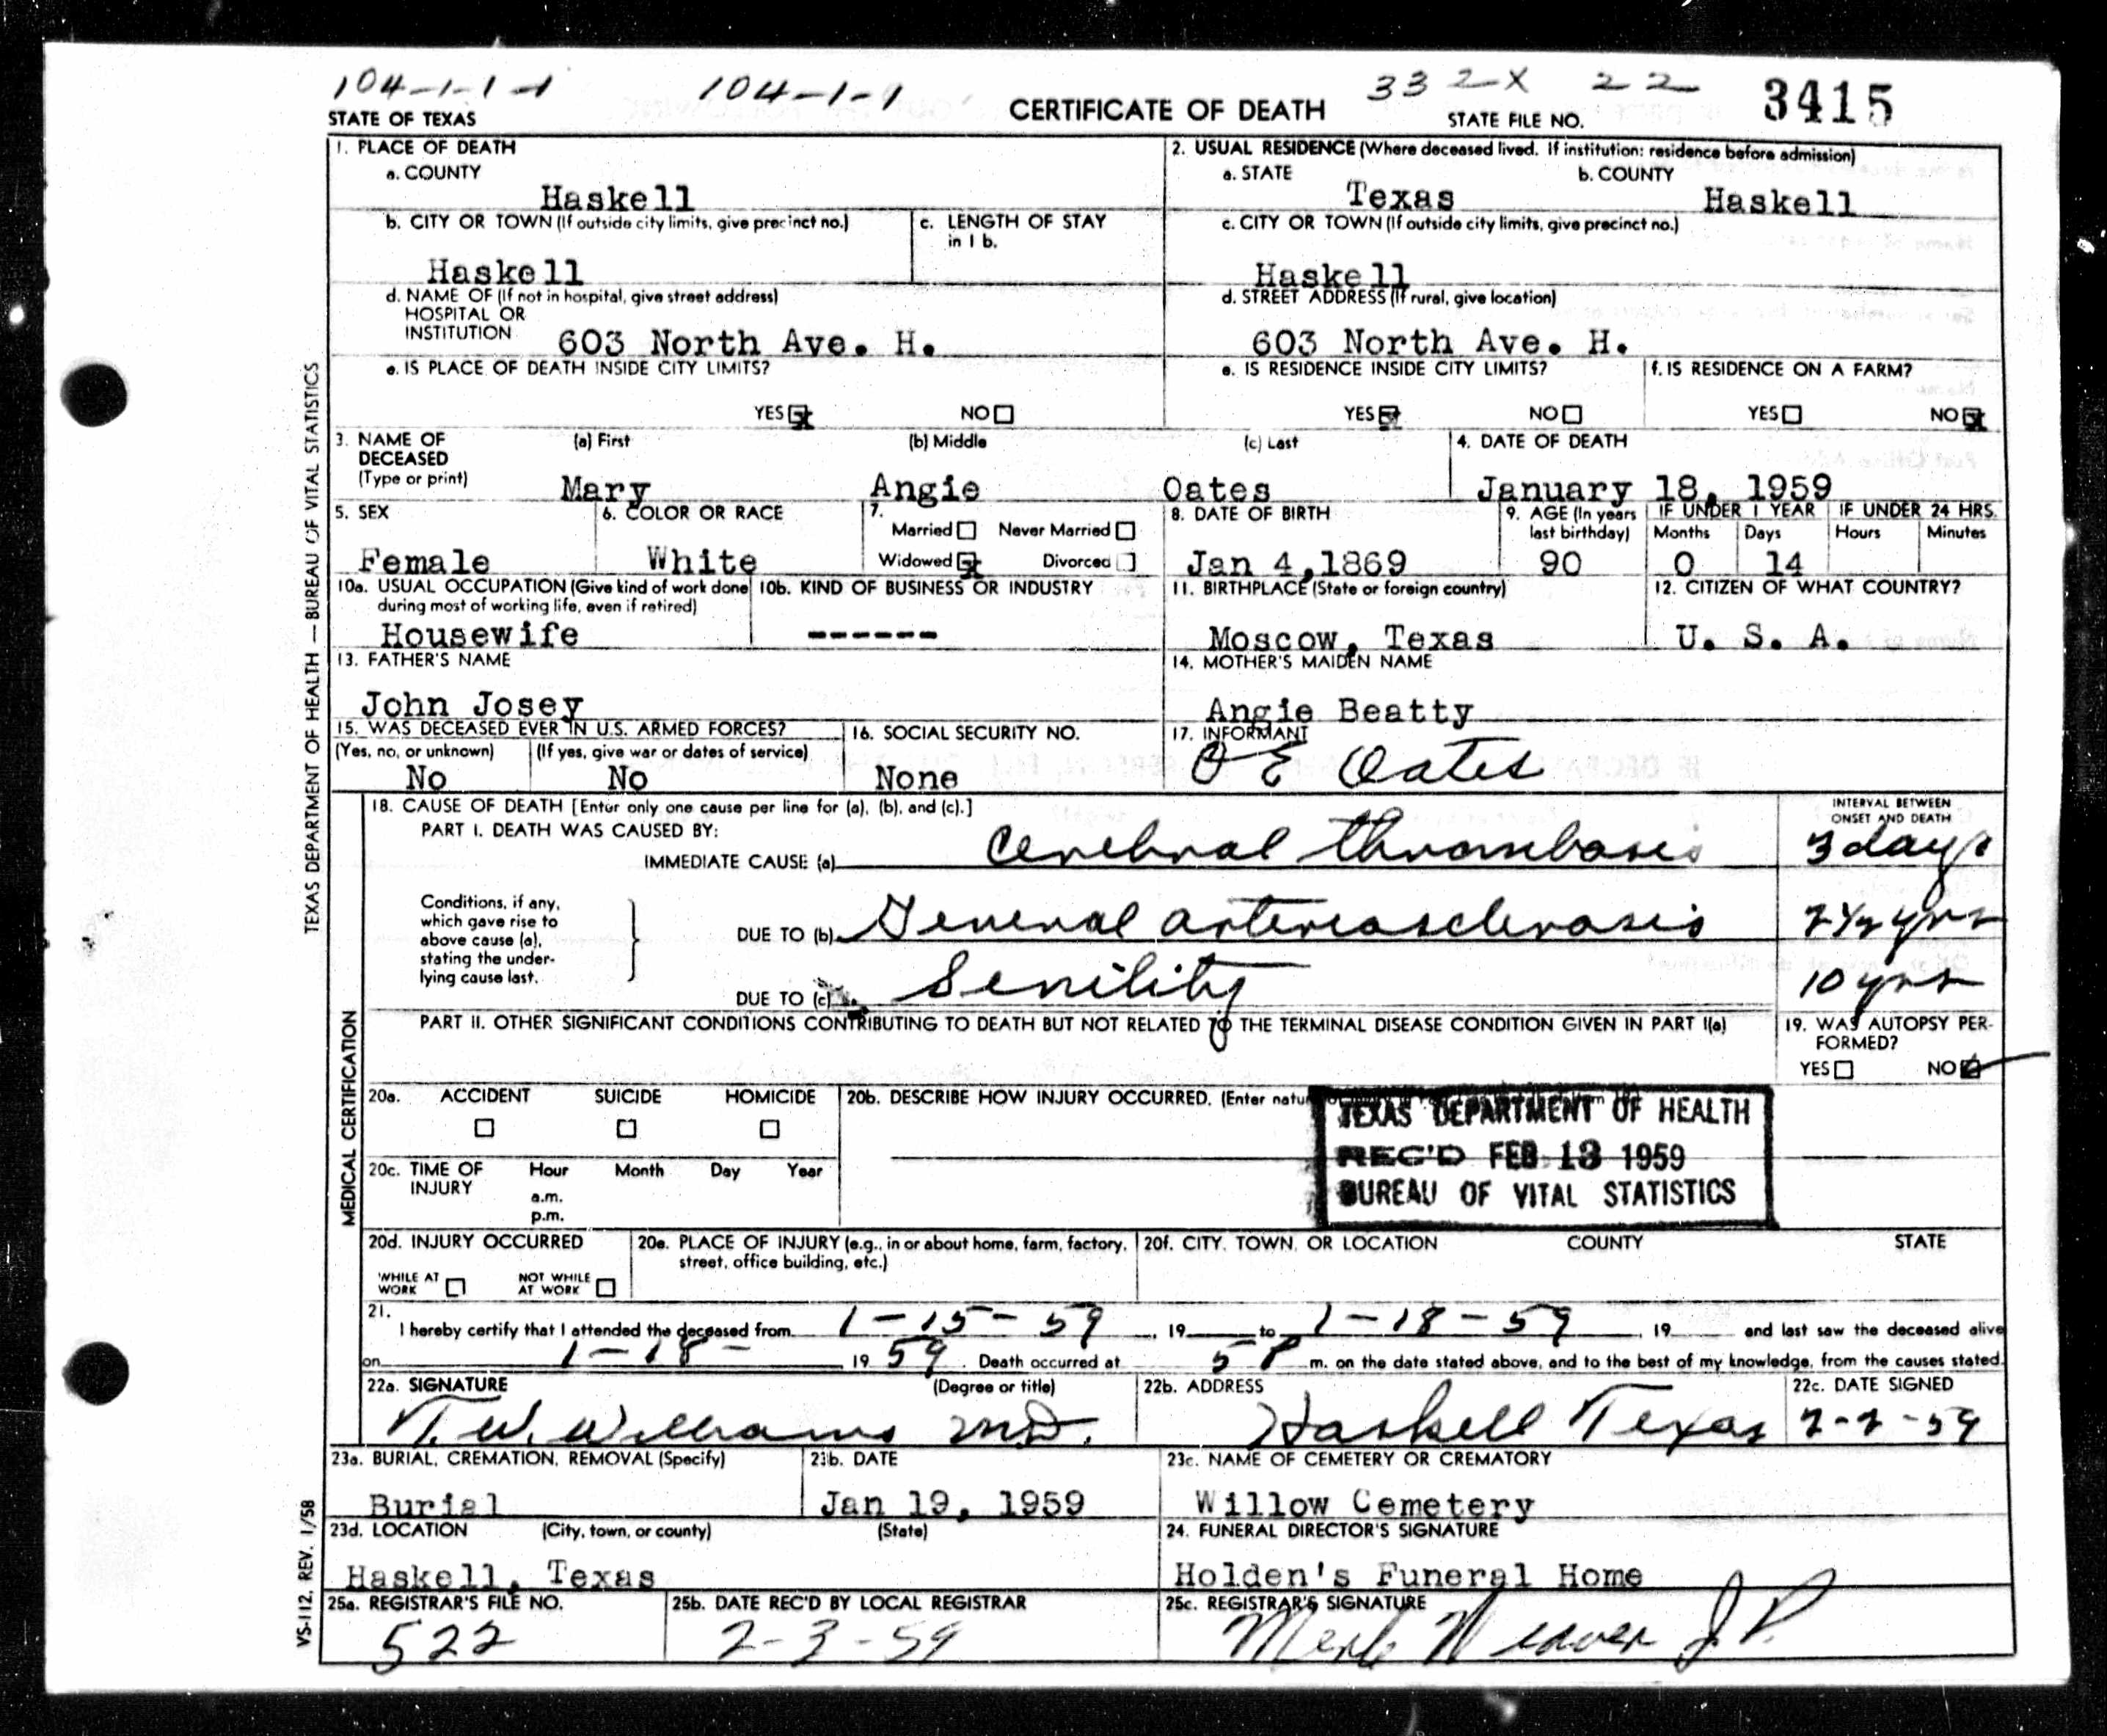 104-1-1-1 104-1-1 332-X 22 3415
STATE OF TEXAS CERTIFICATE OF DEATH STATE FILE NO.
1. PLACE OF DEATH 2. USUAL RESIDENCE (Where deceased lived. If institution: residence before admission)
a. COUNTY a. STATE b. COUNTY
Haskell Texas Haskell
b. CITY OR TOWN (If outside city limits, give precinct no.) c. LENGTH OF STAY in 1 b. c. CITY OR TOWN (If outside city limits, give precinct no.)
Haskell Haskell
d. NAME OF (If not in hospital, give street address) d. STREET ADDRESS (If rural, give location)
HOSPITAL OR
INSTITUTION 603 North Ave. H. 603 North Ave. H.
e. IS PLACE OF DEATH INSIDE CITY LIMITS? e. IS RESIDENCE INSIDE CITY LIMITS? f. IS RESIDENCE ON A FARM?
YES NO YES NO YES NO
3. NAME OF DECEASED (Type or print) (a) First (b) Middle (c) Last 4. DATE OF DEATH
Mary Angie Oates January 18, 1959
5. SEX 6. COLOR OR RACE 7. Married Never Married 8. DATE OF BIRTH 9. AGE (In years last birthday) IF UNDER 1 YEAR IF UNDER 24 HRS.
Widowed Divorced Months Days Hours Minutes
Female White Jan 4,1869 90 0 14
10a. USUAL OCCUPATION (Give kind of work done during most of working life, even if retired) 10b. KIND OF BUSINESS OR INDUSTRY 11. BIRTHPLACE (State or foreign country) 12. CITIZEN OF WHAT COUNTRY?
Housewife ------ Moscow, Texas U. S. A.
13. FATHER'S NAME 14. MOTHER'S MAIDEN NAME
John Josey Angie Beatty
15. WAS DECEASED EVER IN U.S. ARMED FORCES? 16. SOCIAL SECURITY NO. 17. INFORMANT
(Yes, no, or unknown) (If yes, give war or dates of service)
No No None O E Oates
18. CAUSE OF DEATH [Enter only one cause per line for (a), (b), and (c).] INTERVAL BETWEEN ONSET AND DEATH
PART I. DEATH WAS CAUSED BY:
IMMEDIATE CAUSE (a) Cerebral thrombosis 3 days
Conditions, if any, which gave rise to above cause (a), stating the underlying cause last.
DUE TO (b) General arteriosclerosis 2½ yrs
DUE TO (c) Senility 10 yrs
PART II. OTHER SIGNIFICANT CONDITIONS CONTRIBUTING TO DEATH BUT NOT RELATED TO THE TERMINAL DISEASE CONDITION GIVEN IN PART I(a) 19. WAS AUTOPSY PERFORMED?
YES NO
20a. ACCIDENT SUICIDE HOMICIDE 20b. DESCRIBE HOW INJURY OCCURRED. (Enter natu
TEXAS DEPARTMENT OF HEALTH
REC'D FEB 13 1959
BUREAU OF VITAL STATISTICS
20c. TIME OF INJURY Hour Month Day Year
a.m.
p.m.
20d. INJURY OCCURRED 20e. PLACE OF INJURY (e.g., in or about home, farm, factory, street, office building, etc.) 20f. CITY, TOWN, OR LOCATION COUNTY STATE
WHILE AT WORK NOT WHILE AT WORK
21.
I hereby certify that I attended the deceased from 1-15-59, 19 to 1-18-59, 19 and last saw the deceased alive
on 1-18- 19 59. Death occurred at 5 P m. on the date stated above, and to the best of my knowledge, from the causes stated.
22a. SIGNATURE (Degree or title) 22b. ADDRESS 22c. DATE SIGNED
T. W. Williams M.D. Haskell Texas 2-2-59
23a. BURIAL, CREMATION, REMOVAL (Specify) 23b. DATE 23c. NAME OF CEMETERY OR CREMATORY
Burial Jan 19, 1959 Willow Cemetery
23d. LOCATION (City, town, or county) (State) 24. FUNERAL DIRECTOR'S SIGNATURE
Haskell, Texas Holden's Funeral Home
25a. REGISTRAR'S FILE NO. 25b. DATE REC'D BY LOCAL REGISTRAR 25c. REGISTRAR'S SIGNATURE
522 2-3-59 Merle Weaver J.P.
TEXAS DEPARTMENT OF HEALTH — BUREAU OF VITAL STATISTICS
MEDICAL CERTIFICATION
VS-112, REV. 1/58